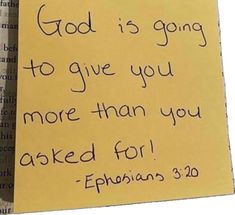 God is going
to give you
more than you
asked for!
-Ephesians 3:20